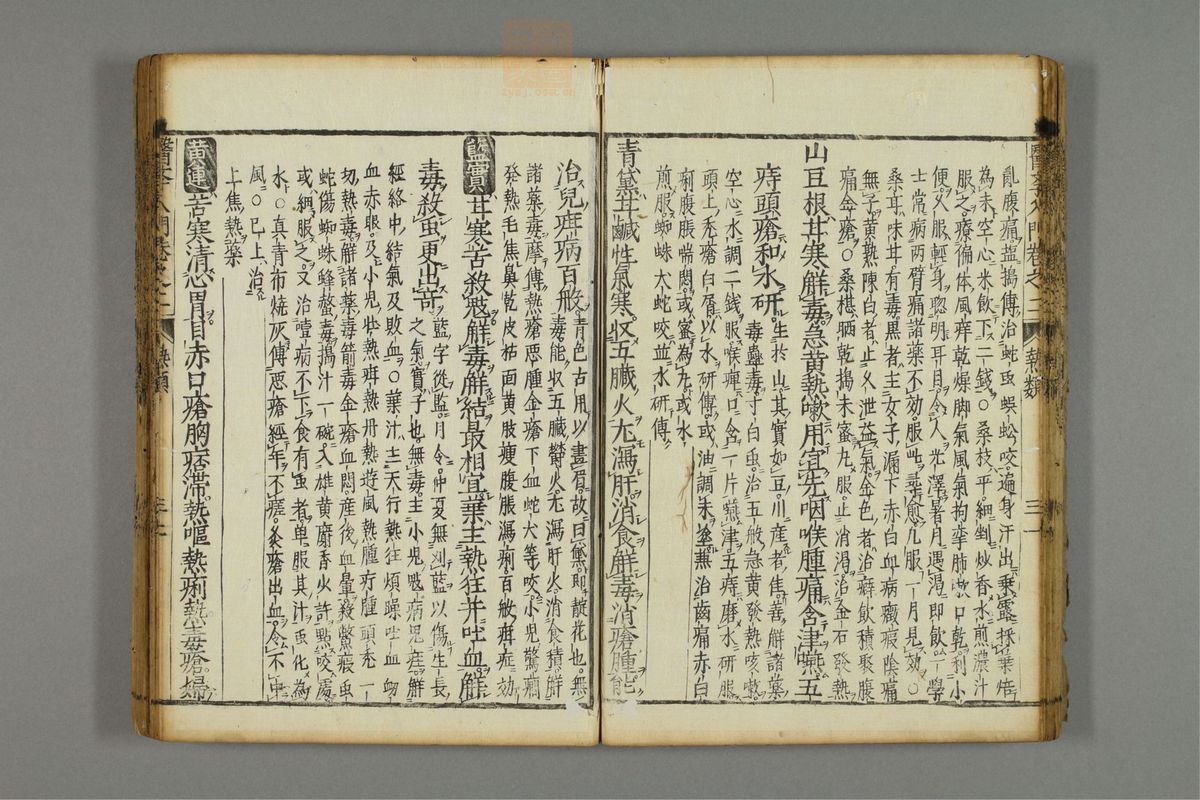 亂腹痛盐搗傅治蛇䖝蜈蚣咬遍身汗出乗露採葉焙
為末空心米飲下二錢○桑枝平細剉炒香水煎濃汁
服之療偏体風痒乾燥脚氣風氣拘挛肺嗽口乾利小
便久服輕身聦明耳目令人光澤暑月遇渴即飲一學
士常病兩臂痛諸藥不効服此尋愈凡服一月見效○
桑耳味甘有毒黒者主女子漏下赤白血病癥瘕陰痛
無子黄熟陳白者止久泄益氣金色者治癖飲積聚腹
痛金瘡○桑椹晒乾搗末蜜丸服止消渴治金石發熱
山豆根甘寒解毒急黄熱嗽用宜先咽喉腫痛含津嚥五
痔頭瘡和水研
生於山其實如豆川産者佳善解諸藥
毒蠱毒寸白虫治五般急黄發熱咳嗽
空心水調二錢服喉痺口含一片嚥津五痔磨水研服
頭上禿瘡白屑以水研傅或油調末塗兼治齒痛赤白
痢腹脹喘悶或蜜為丸或水
煎服蜘蛛犬蛇咬並水研傅
青黛甘鹹性氣寒収五臓火尢瀉肝消食解毒消瘡腫能
治兒疳病百般
青色古用以畫眉故曰黛即靛花也無
毒能収五臓欝火尢瀉肝火消食積解
諸藥毒摩傅熱瘡惡腫金瘡下血蛇犬等咬小兒驚癇
發熱毛焦鼻乾皮枯面黄肢瘦腹脹瀉痢百般疳症効
藍實甘寒苦殺蠱解毒解結最相宜葉主熱狂并吐血解
毒殺虫更出竒
藍字從監月令仲夏無刈藍以傷生長
之氣實子也無毒主小兒 病兒疰解
經絡中結氣及敗血○葉汁主天行熱狂煩躁吐血衂
血赤服及小兒壮熱疳熱丹熱遊風熱腫疔腫頭禿一
切熱毒解諸藥毒箭毒金瘡血悶産後血暈殺鱉瘕䖝
蛇傷蜘蛛蜂螫毒搗汁一碗入雄黄麝香少許點咬處
或細服之又治噎病不下食有䖝者单服其汁䖝化為
水○真青布燒灰傅惡瘡經年不瘥灸瘡出血令不中
風○已上治
上焦熱藥
黄連苦寒清心胃目赤口瘡胸痞滯熱嘔熱痢熱毒瘡婦
醫學入門卷之二 熱類
醫學入門卷之二 熱類